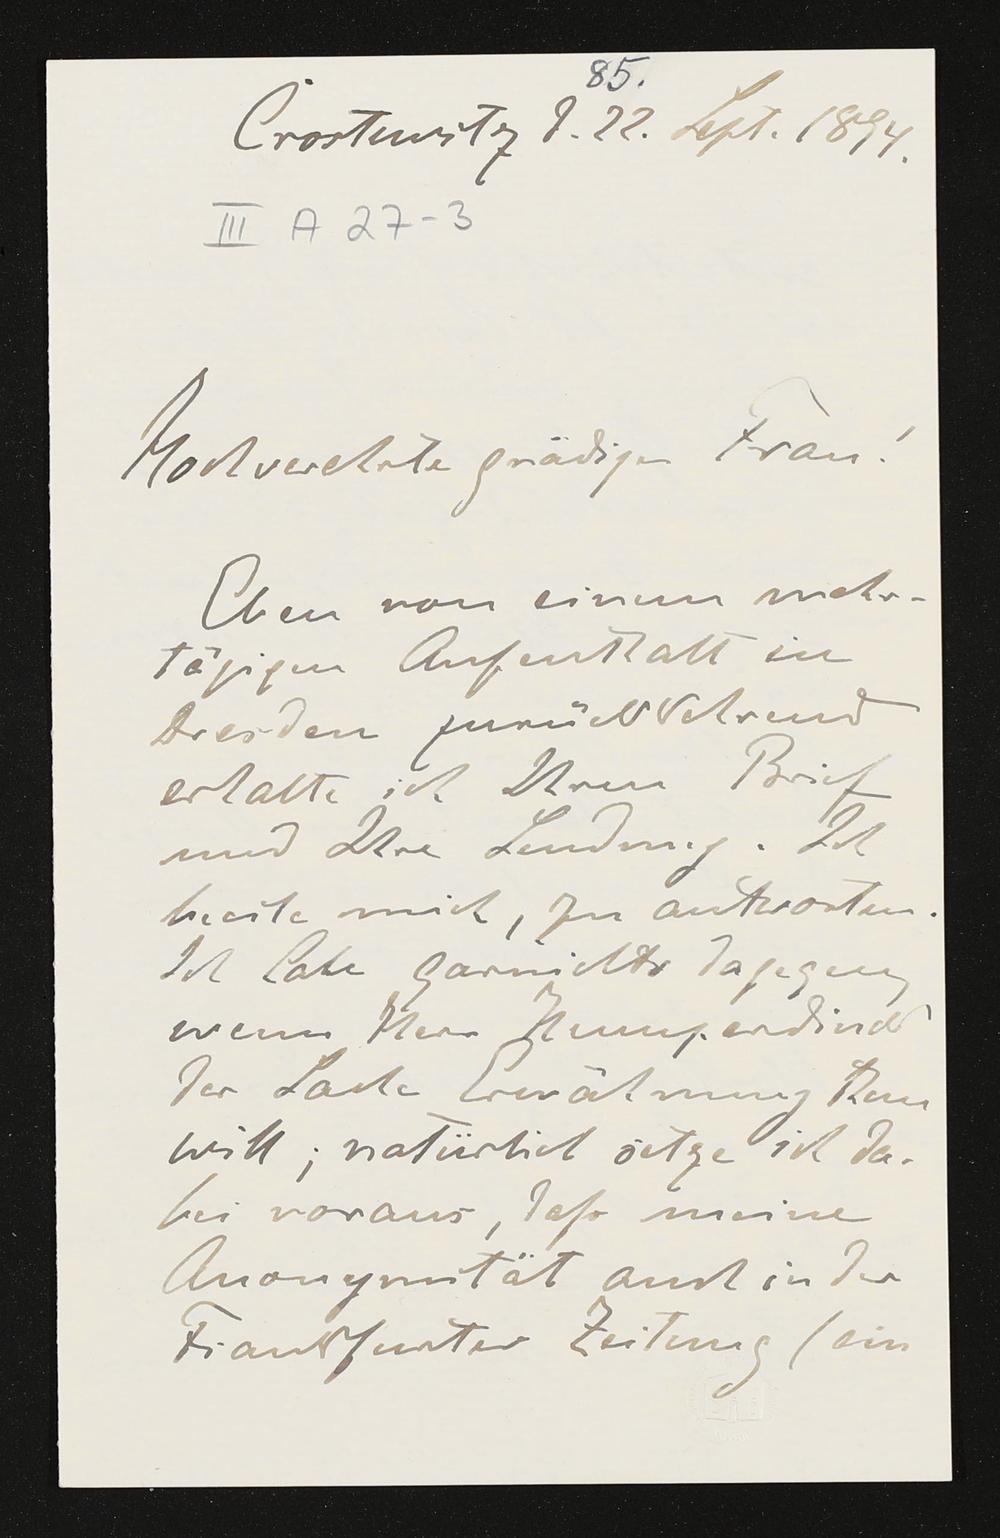 85.
Crostewitz d. 22. Sept. 1894.
III A 27-3
Hochverehrte gnädige Frau!
Eben von einem mehr-
tägigen Aufenthalt in
Dresden zurückkehrend
erhalte ich Ihren Brief
und Ihre Sendung. Ich
beeile mich, zu antworten.
Ich habe garnichts dagegen
wenn Herr Humperdinck
der Sache Erwähnung thun
will; natürlich setze ich da-
bei voraus, daß meine
Anonymität auch in der
Frankfurter Zeitung (ein